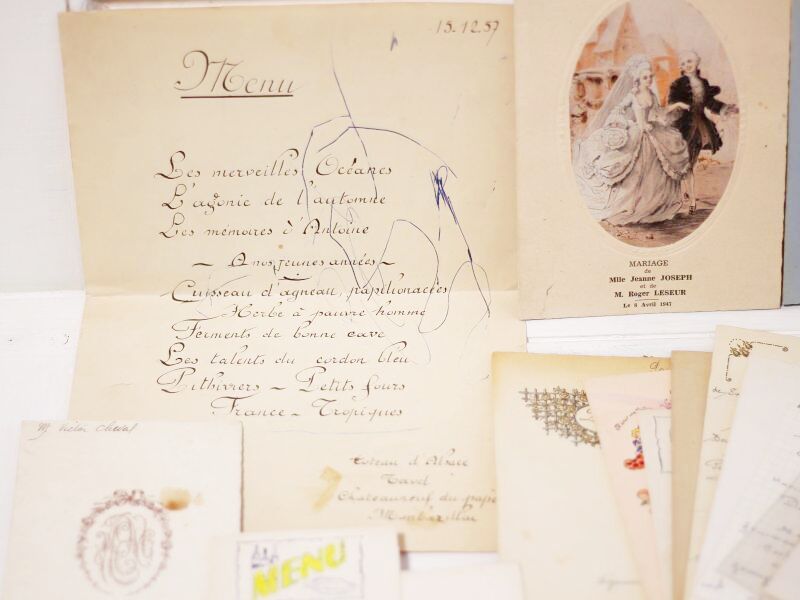 15.12.57
Menu
Les merveilles Océanes
L'agonie de l'automne
Les mémoires d'Antoine
— A nos jeunes années —
Cuisseau d'agneau, papilionacées
Herbe à pauvre homme
Ferments de bonne cave
Les talents du cordon bleu
Pithiviers — Petits fours
France — Tropiques
Coteau d'Alsace
Tavel
Chateauneuf du pape
Monbazillac
MARIAGE
de
Mlle Jeanne JOSEPH
et de
M. Roger LESEUR
Le 6 Avril 1947
M Victor Cheval
MENU